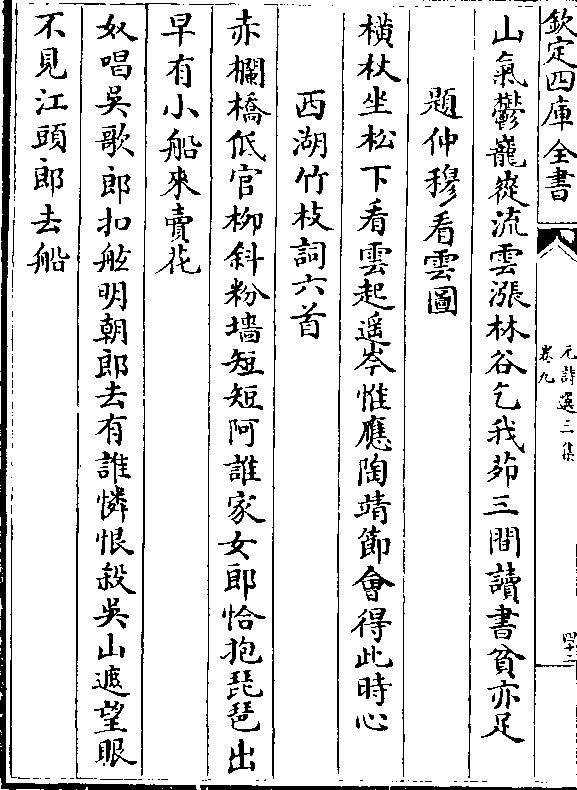 欽定四庫全書
元詩選三集
卷九
四十二
山氣鬱巃嵷流雲漲林谷乞我茆三間讀書貧亦足
題仲穆看雲圖
橫杖坐松下看雲起遥岑惟應陶靖節會得此時心
西湖竹枝詞六首
赤欄橋低官栁斜粉墻短短阿誰家女郎恰抱琵琶出
早有小船來賣花
奴唱吳歌郎扣舷明朝郎去有誰憐恨殺吳山遮望眼
不見江頭郎去船